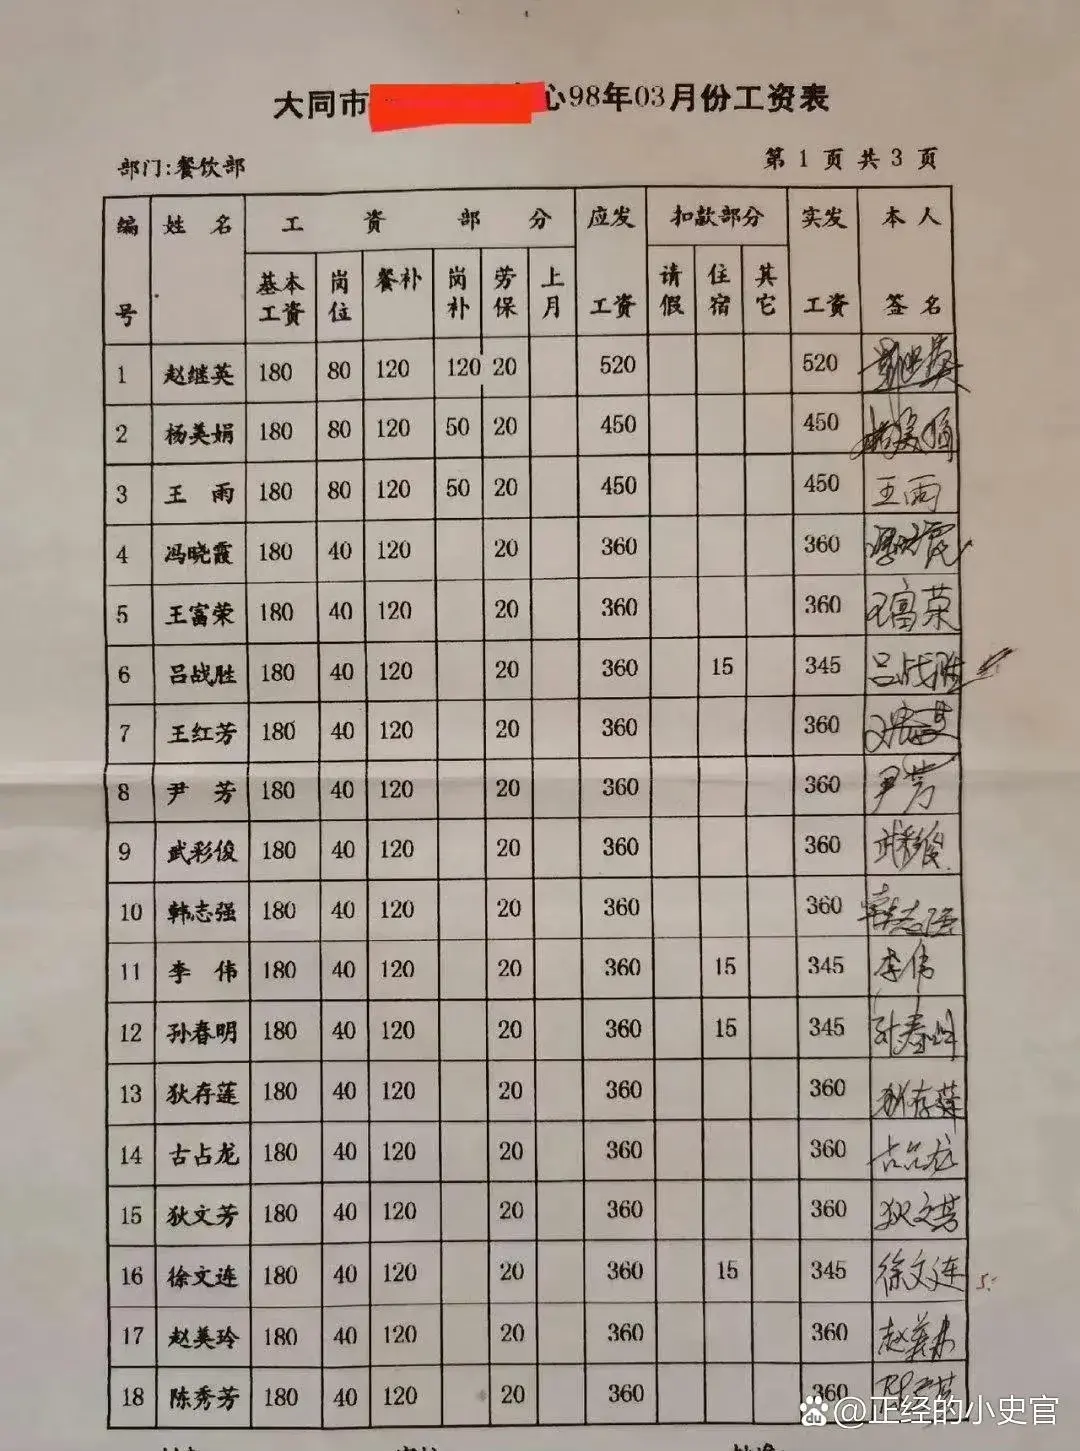 大同市 心98年03月份工资表
部门:餐饮部 第 1 页 共 3 页
编号 姓名 工资部分 应发工资 扣款部分 实发工资 本人签名
基本工资 岗位 餐补 岗补 劳保 上月 请假 住宿 其它
1 赵继英 180 80 120 120 20 520 520
2 杨美娟 180 80 120 50 20 450 450 杨美娟
3 王雨 180 80 120 50 20 450 450 王雨
4 冯晓霞 180 40 120 20 360 360
5 王富荣 180 40 120 20 360 360 王富荣
6 吕战胜 180 40 120 20 360 15 345 吕战胜
7 王红芳 180 40 120 20 360 360
8 尹芳 180 40 120 20 360 360 尹芳
9 武彩俊 180 40 120 20 360 360 武彩俊
10 韩志强 180 40 120 20 360 360 韩志强
11 李伟 180 40 120 20 360 15 345 李伟
12 孙春明 180 40 120 20 360 15 345 孙春明
13 狄存莲 180 40 120 20 360 360 狄存莲
14 古占龙 180 40 120 20 360 360 古占龙
15 狄文芳 180 40 120 20 360 360 狄文芳
16 徐文连 180 40 120 20 360 15 345 徐文连
17 赵美玲 180 40 120 20 360 360
18 陈秀芳 180 40 120 20 360 360
Bai du @正经的小史官